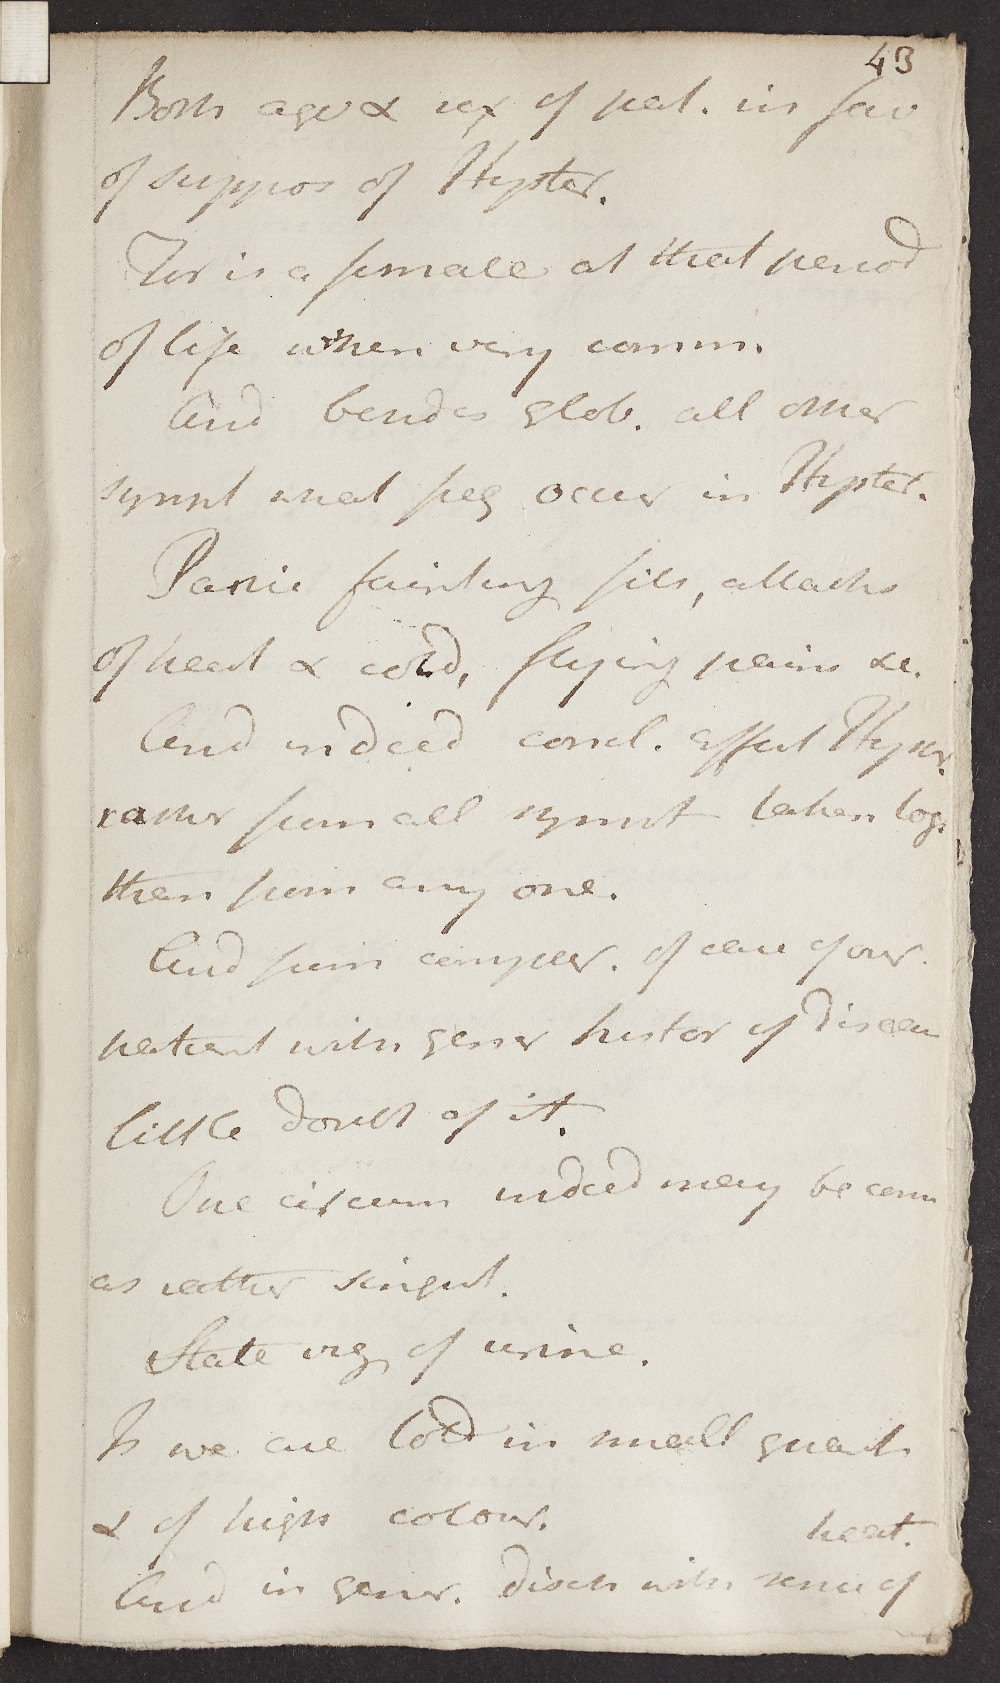 43
Both age & sex of pat. in fav
of suppos of Hyster.
For is a female at that period
of life when very comm.
And besides glob. all other
sympt what freq occur in Hyster.
Panic fainting fits, attacks
of heat & cold, flying pains &c.
And indeed concl. affect Hyster.
rather from all sympt taken tog.
then from any one.
And from compar. of case of our
patient with gener histor of disease
little doubt of it.
One circum indeed may be conn
as rather singul.
State viz of urine.
Is we are told in small quant
& of high colour.
heat.
And in gener. disch with sense of